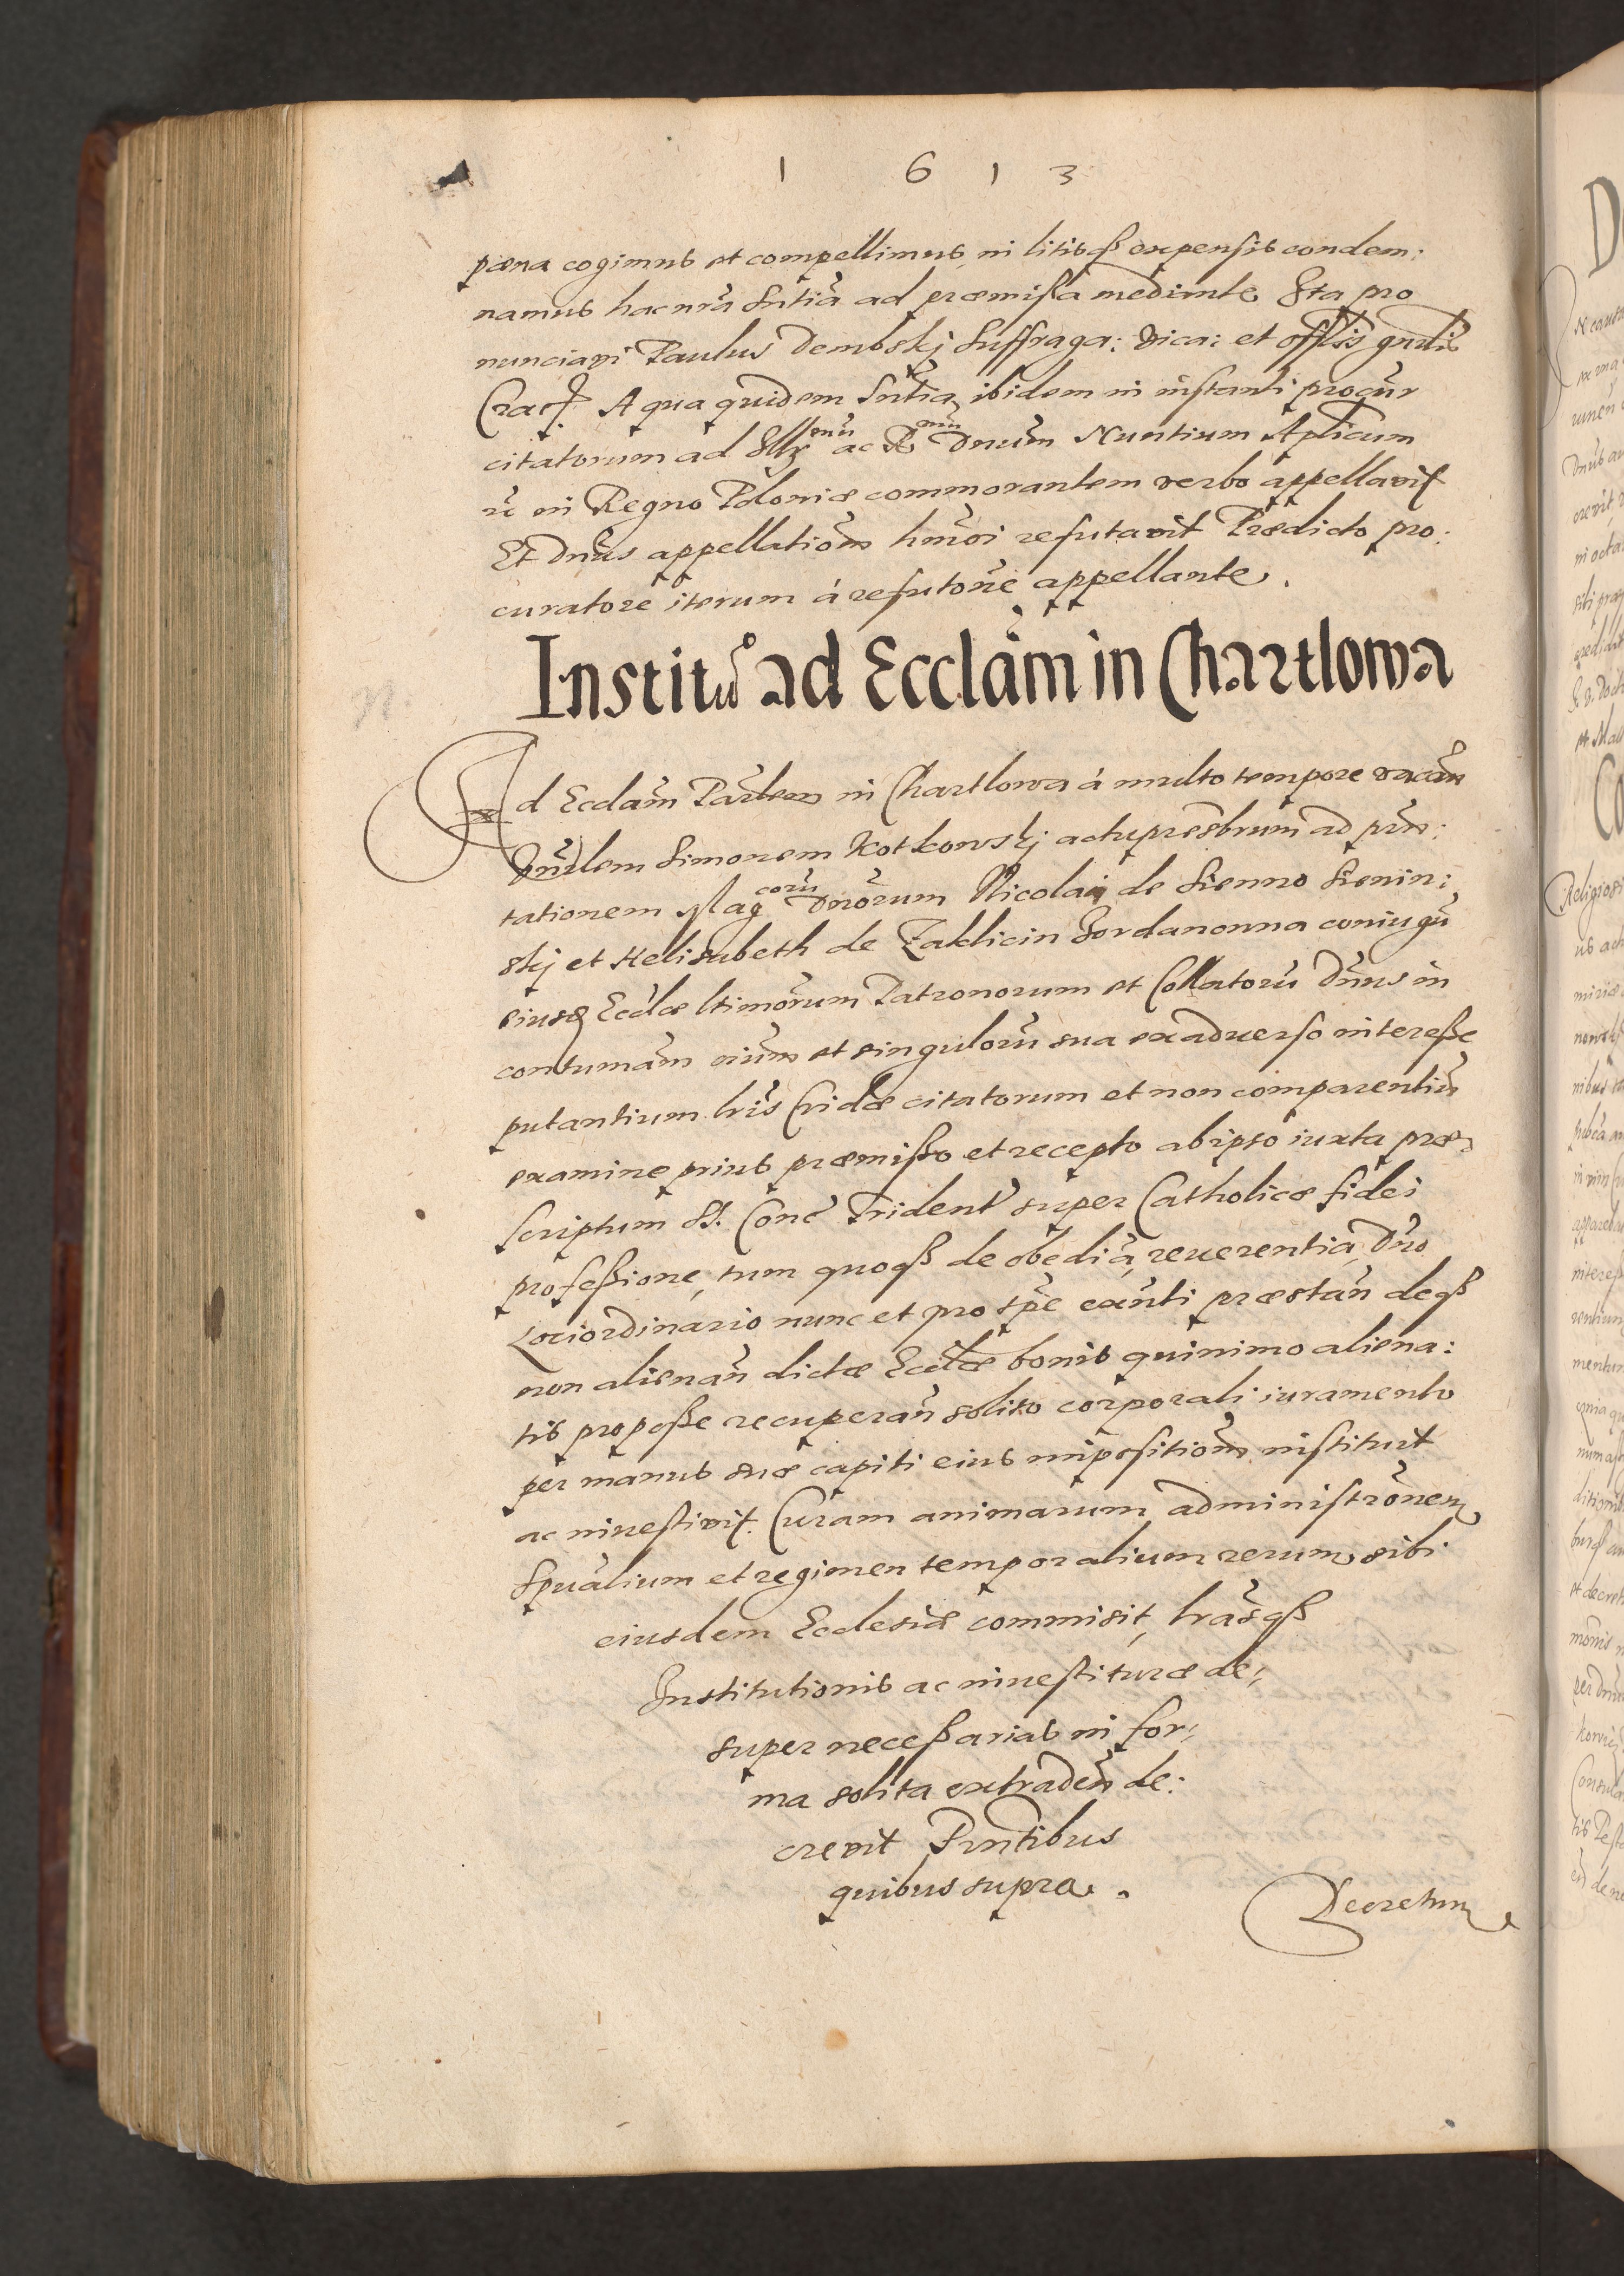 1 6 1 3
pœna cogimus et compellimus, in litisq3 expensis condem:
namus hac nr̃a sntĩa ad præmißa mediante Ita pro
nunciavi Paulus Dembskj Suffraga: Vica: et offlĩs gnrl̃is
Crac. A qua quidem sntĩa ibidem in instanti procũr
citatorum ad Illrmũ ac Rmũ Dnũm Nuntium Aplĩcum
in Regno Poloniæ commorantem verbo appellavit
Et Dnũs appellatiõm hmõi refutavit Prædicto pro:
curatore iterum á refutoñe appellante.
Institũo ad Ecclãm in Chartlowa
Ad Ecclãm Parl̃em in Chartlowa á multo tempore vacãn
Simonem Kotkowskj actupresbr̃um ad prñ:
tationem Magcorũ Dnõrum Nicolai de Sienno Sienin:
skj et Helisabeth de Zaklicin Jordanonna coniugũ
eiusd Ecclæ ltimõrum Patronorum et Collatorũ Dnũs in
contumãm oiũm et singulorũ sua ex adverso intereße
putantium lrĩs Cridæ citatorum et non comparentiũ
examine prius præmißo et recepto ab ipso iuxta præ,
scriptum SS. Conc̃ Trident̃ super Catholicæ fidei
profeßione, tum quoq3 de obediã, reverentia, Dnõ
Loci ordinario nunc et pro tpẽ exñti præstãn deq3
non alienañ dictæ Ecclæ bonis quinimo aliena:
tis pro poße recuperañ solito corporali iuramento
per manus suæ capiti eius impositiõm instituit
ac investivit. Curam animarum administrõnem
Spũalium et regimen temporalium rerum sibi
eiusdem Ecclesiæ commisit, lrãsq3
Institutionis ac investituræ de,
super neceßarias in for,
ma solita extradeñ de:
crevit Prñtibus
quibus supra.
Decretum